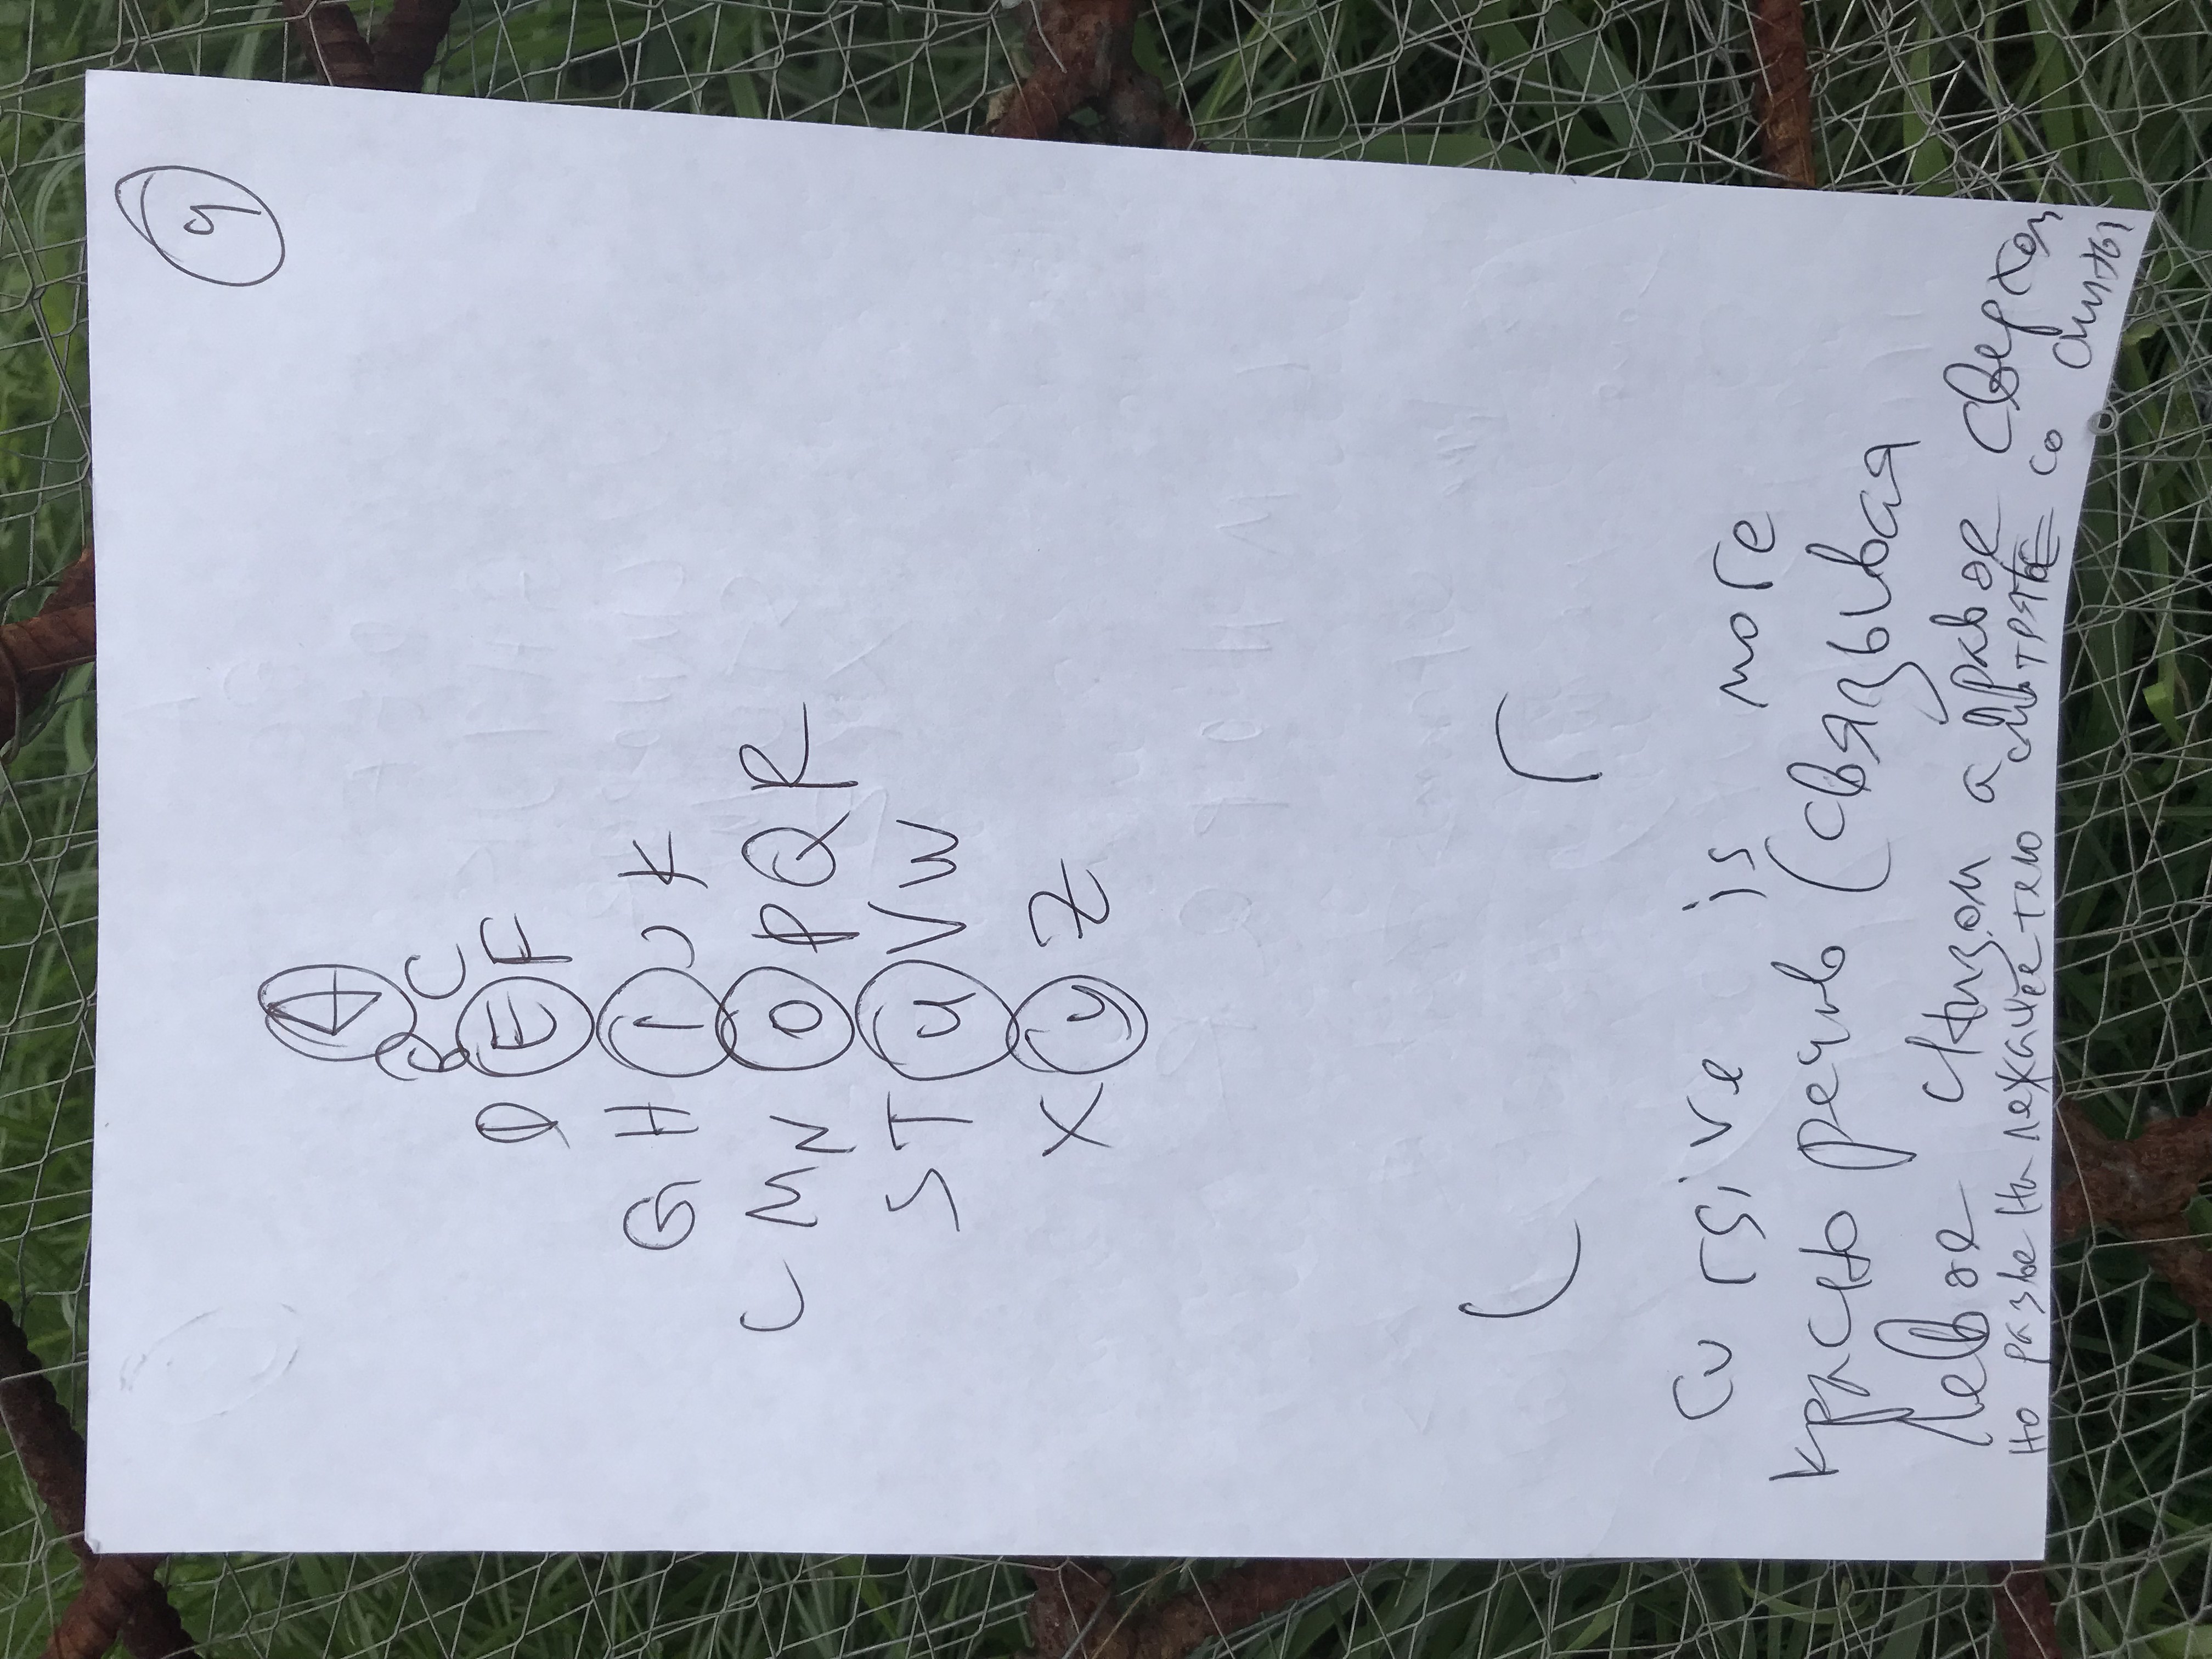 9
A
B C
D E F
G H I J K
L M N O P Q R
S T U V W
X Y Z
cursive is more
красноречив (связывая
левое снизом а правое сверхом
но разве на лежачее тело смотрят со спины